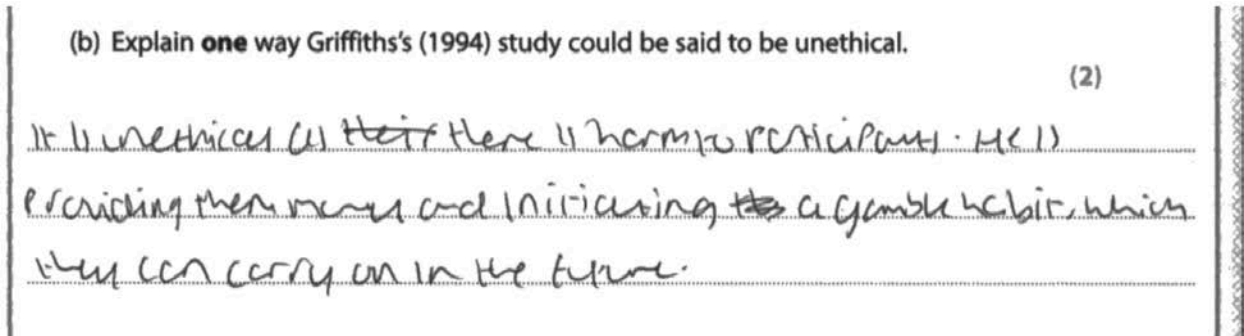 (b) Explain one way Griffiths's (1994) study could be said to be unethical.
(2)
It is unethical as their there is harm to participants. He is
providing them money and initiating a gamble habit, which
they can carry on in the future.